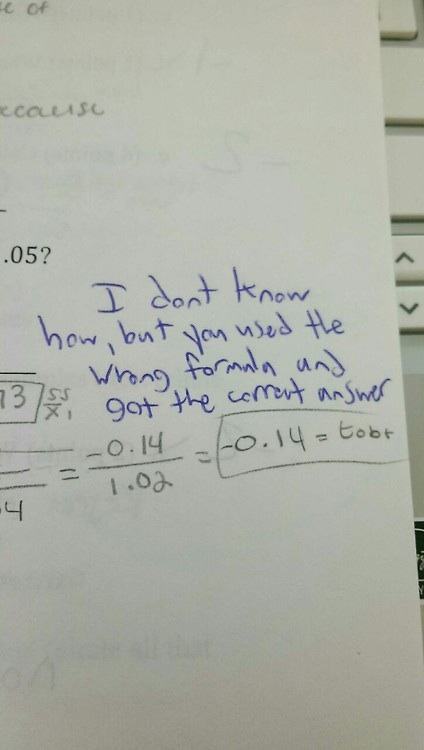 .05?
I dont know
how, but you used the
wrong formula and
got the correct answer
SS
X₁
= -0.14 / 1.02 = -0.14 = tobt